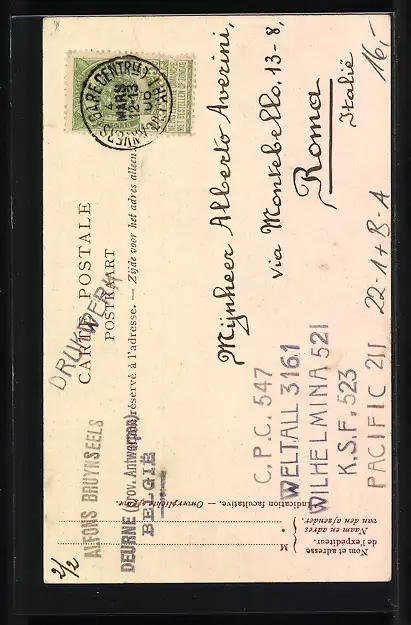 CARTE POSTALE
POSTKAART
Côté réservé à l'adresse. — Zijde voor het adres alleen
DRUKWERK
ANVERS GARE CENTRALE
4 MARS
12-13
08
ALFONS BRUYNSEELS
DEURNE (prov. Antwerpen)
BELGIË
Mijnheer Alberto Averini,
Via Montebello, 13-8,
Roma
Italië
16,-
C.P.C. 547
WELTALL 3161
WILHELMINA 521
K.S.F. 523
PACIFIC 211
22-1+B-A
2/2
Indication facultative. — Onverplichte opgave.
Nom et adresse
de l'expéditeur.
Naam en adres
van den afzender.
M